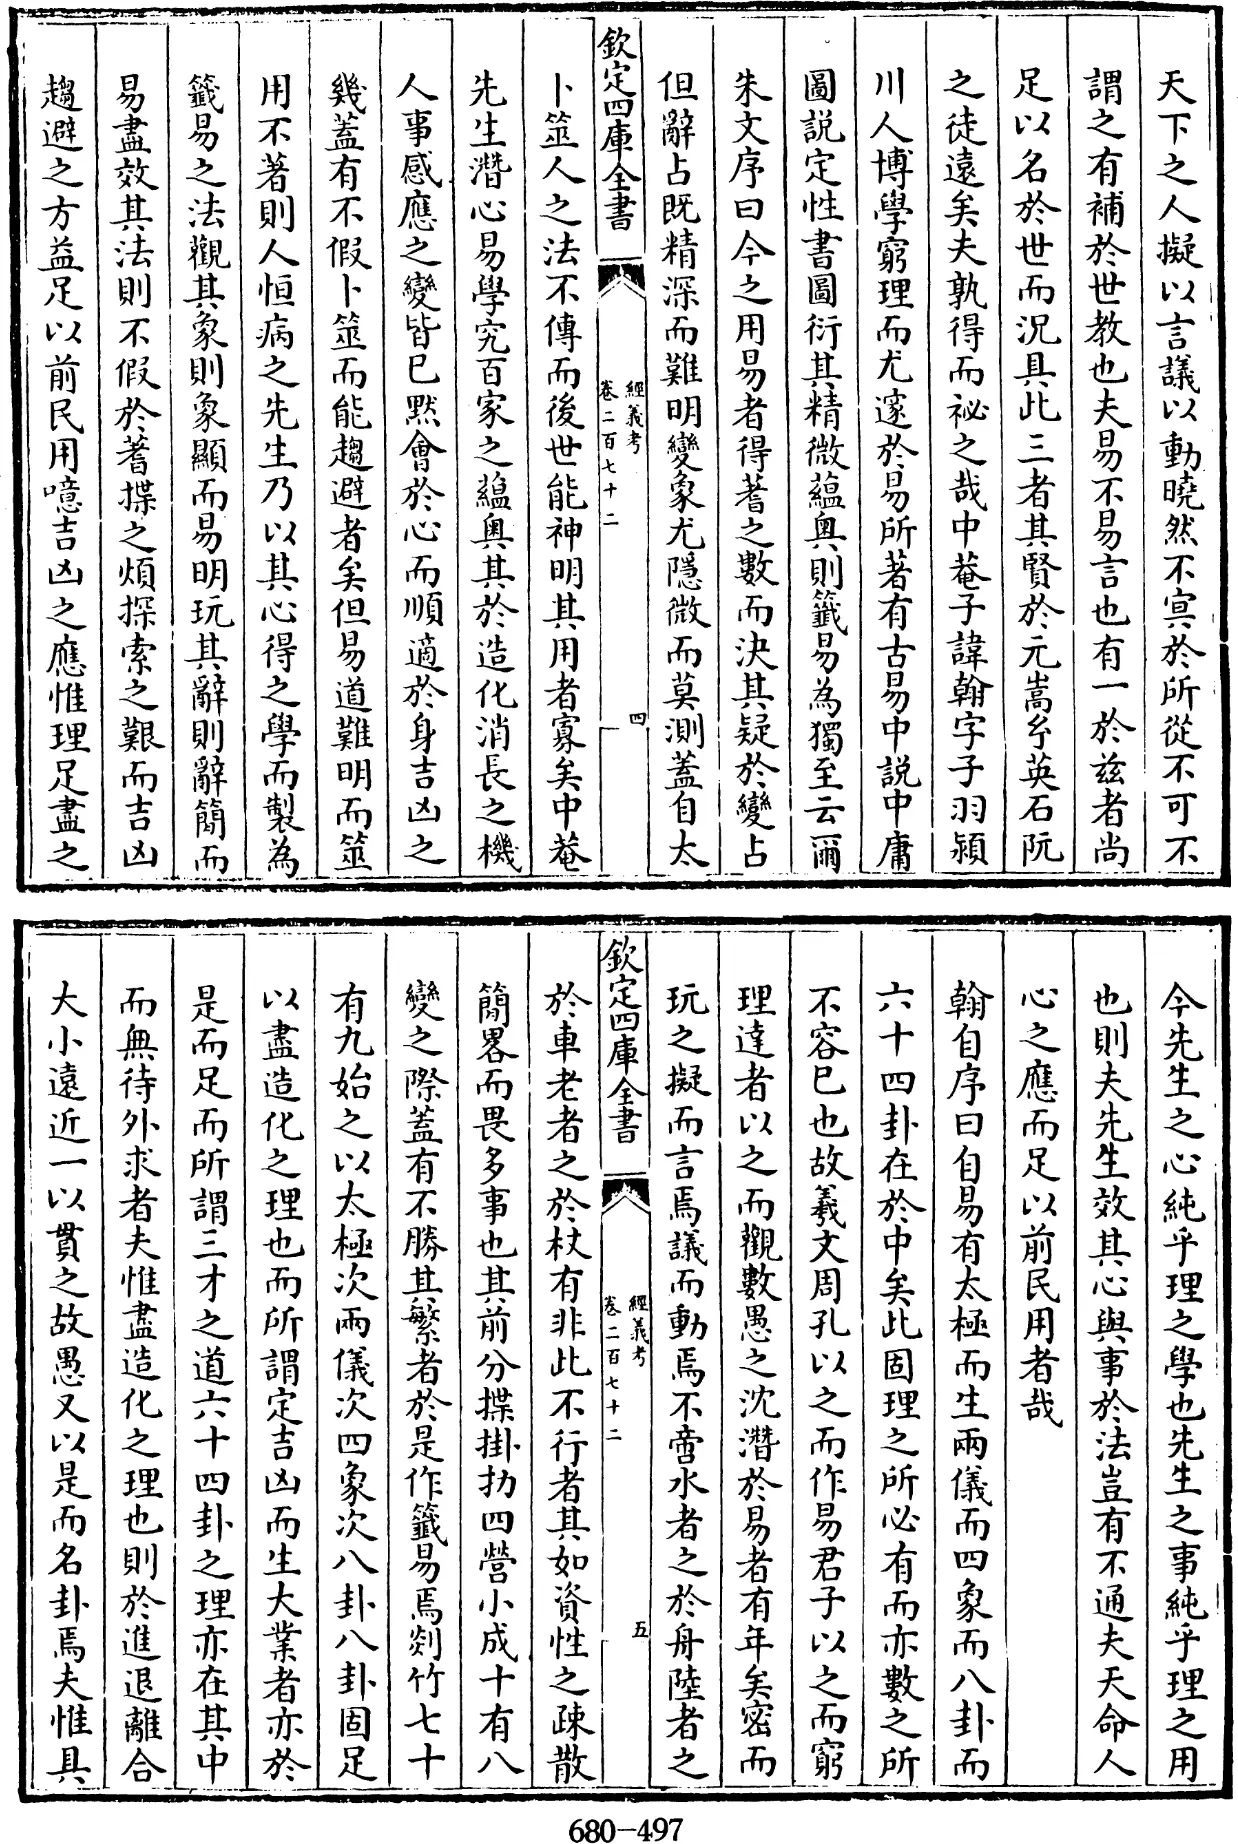 天下之人擬以言議以動曉然不㝠於所從不可不
謂之有補於世教也夫易不易言也有一於兹者尚
足以名於世而況具此三者其賢於元嵩兮英石阮
之徒逺矣夫孰得而祕之哉中菴子諱翰字子羽潁
川人博學窮理而尤邃於易所著有古易中説中庸
圖説定性書圖衍其精微藴奥則籤易為獨至云爾
朱文序曰今之用易者得蓍之數而決其疑於變占
但辭占既精深而難明變象尤隱微而莫測蓋自太
欽定四庫全書
經義考
卷二百七十二
四
卜筮人之法不傳而後世能神明其用者寡矣中菴
先生潛心易學究百家之藴奥其於造化消長之機
人事感應之變皆已黙會於心而順適於身吉凶之
幾蓋有不假卜筮而能趨避者矣但易道難明而筮
用不著則人恒病之先生乃以其心得之學而製為
籤易之法觀其象則象顯而易明玩其辭則辭簡而
易盡效其法則不假於蓍揲之煩探索之艱而吉凶
趨避之方益足以前民用噫吉凶之應惟理足盡之
今先生之心純乎理之學也先生之事純乎理之用
也則夫先生效其心與事於法豈有不通夫天命人
心之應而足以前民用者哉
翰自序曰自易有太極而生兩儀而四象而八卦而
六十四卦在於中矣此固理之所必有而亦數之所
不容已也故羲文周孔以之而作易君子以之而窮
理達者以之而觀數愚之沈潛於易者有年矣密而
玩之擬而言焉議而動焉不啻水者之於舟陸者之
欽定四庫全書
經義考
卷二百七十二
五
於車老者之於杖有非此不行者其如資性之疎散
簡畧而畏多事也其前分揲掛扐四營小成十有八
變之際蓋有不勝其繁者於是作籤易焉剡竹七十
有九始之以太極次兩儀次四象次八卦八卦固足
以盡造化之理也而所謂定吉凶而生大業者亦於
是而足而所謂三才之道六十四卦之理亦在其中
而無待外求者夫惟盡造化之理也則於進退離合
大小遠近一以貫之故愚又以是而名卦焉夫惟具
680-497